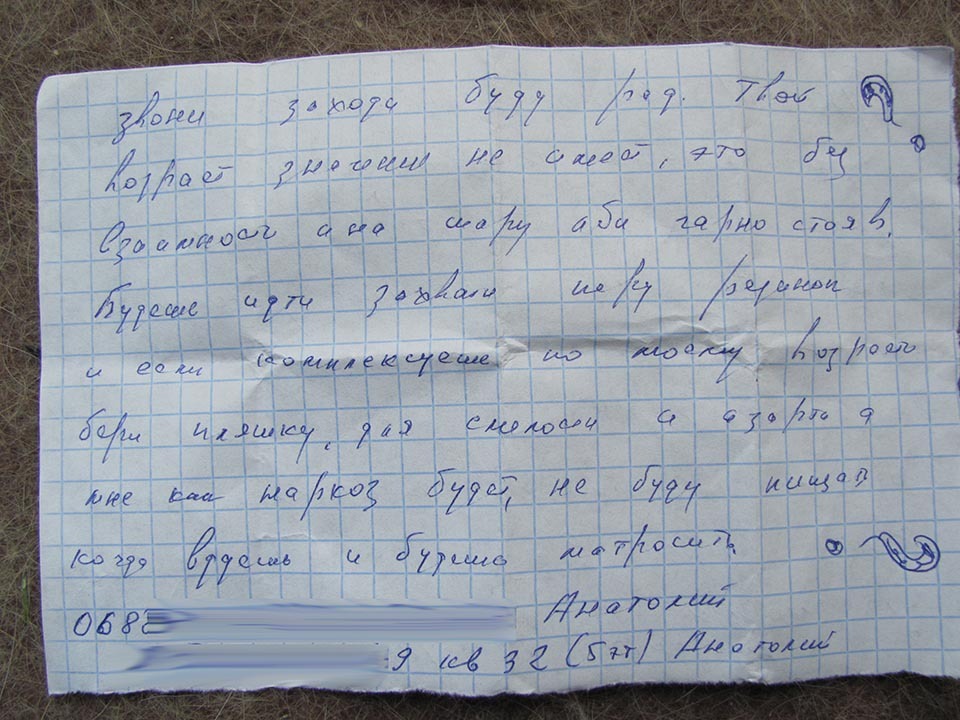 звони заходи буду рад. Твой
возраст значения не имеет, это бы
взаимность а на шару аби гарно стояв.
Будеше идти захвати пару резинок
и если комплексуеше по моему возрасту
бери пляшку, для смелости и азарта а
мне как наркоз будет, не буду пищать
когда вдуешь и будеше матросить
068 Анатолий
9 кв 32 (5эт) Анатолий